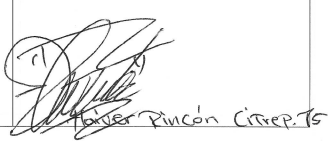 Haiver Rincón Citrep. 75